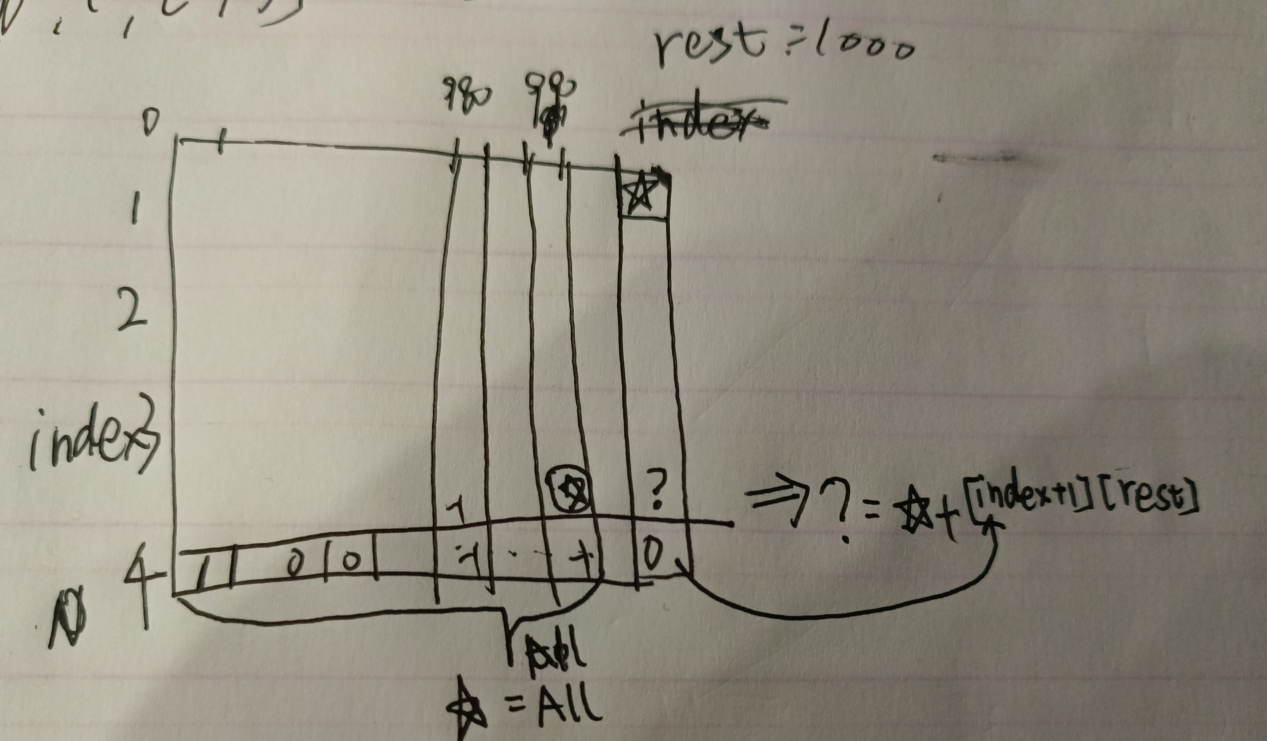 rest = 1000
980 990 index
0
1
☆
2
index 3
☆ ? ⇒ ? = ☆ + [index+1][rest]
4 1 0 0 0
N
All
☆ = All